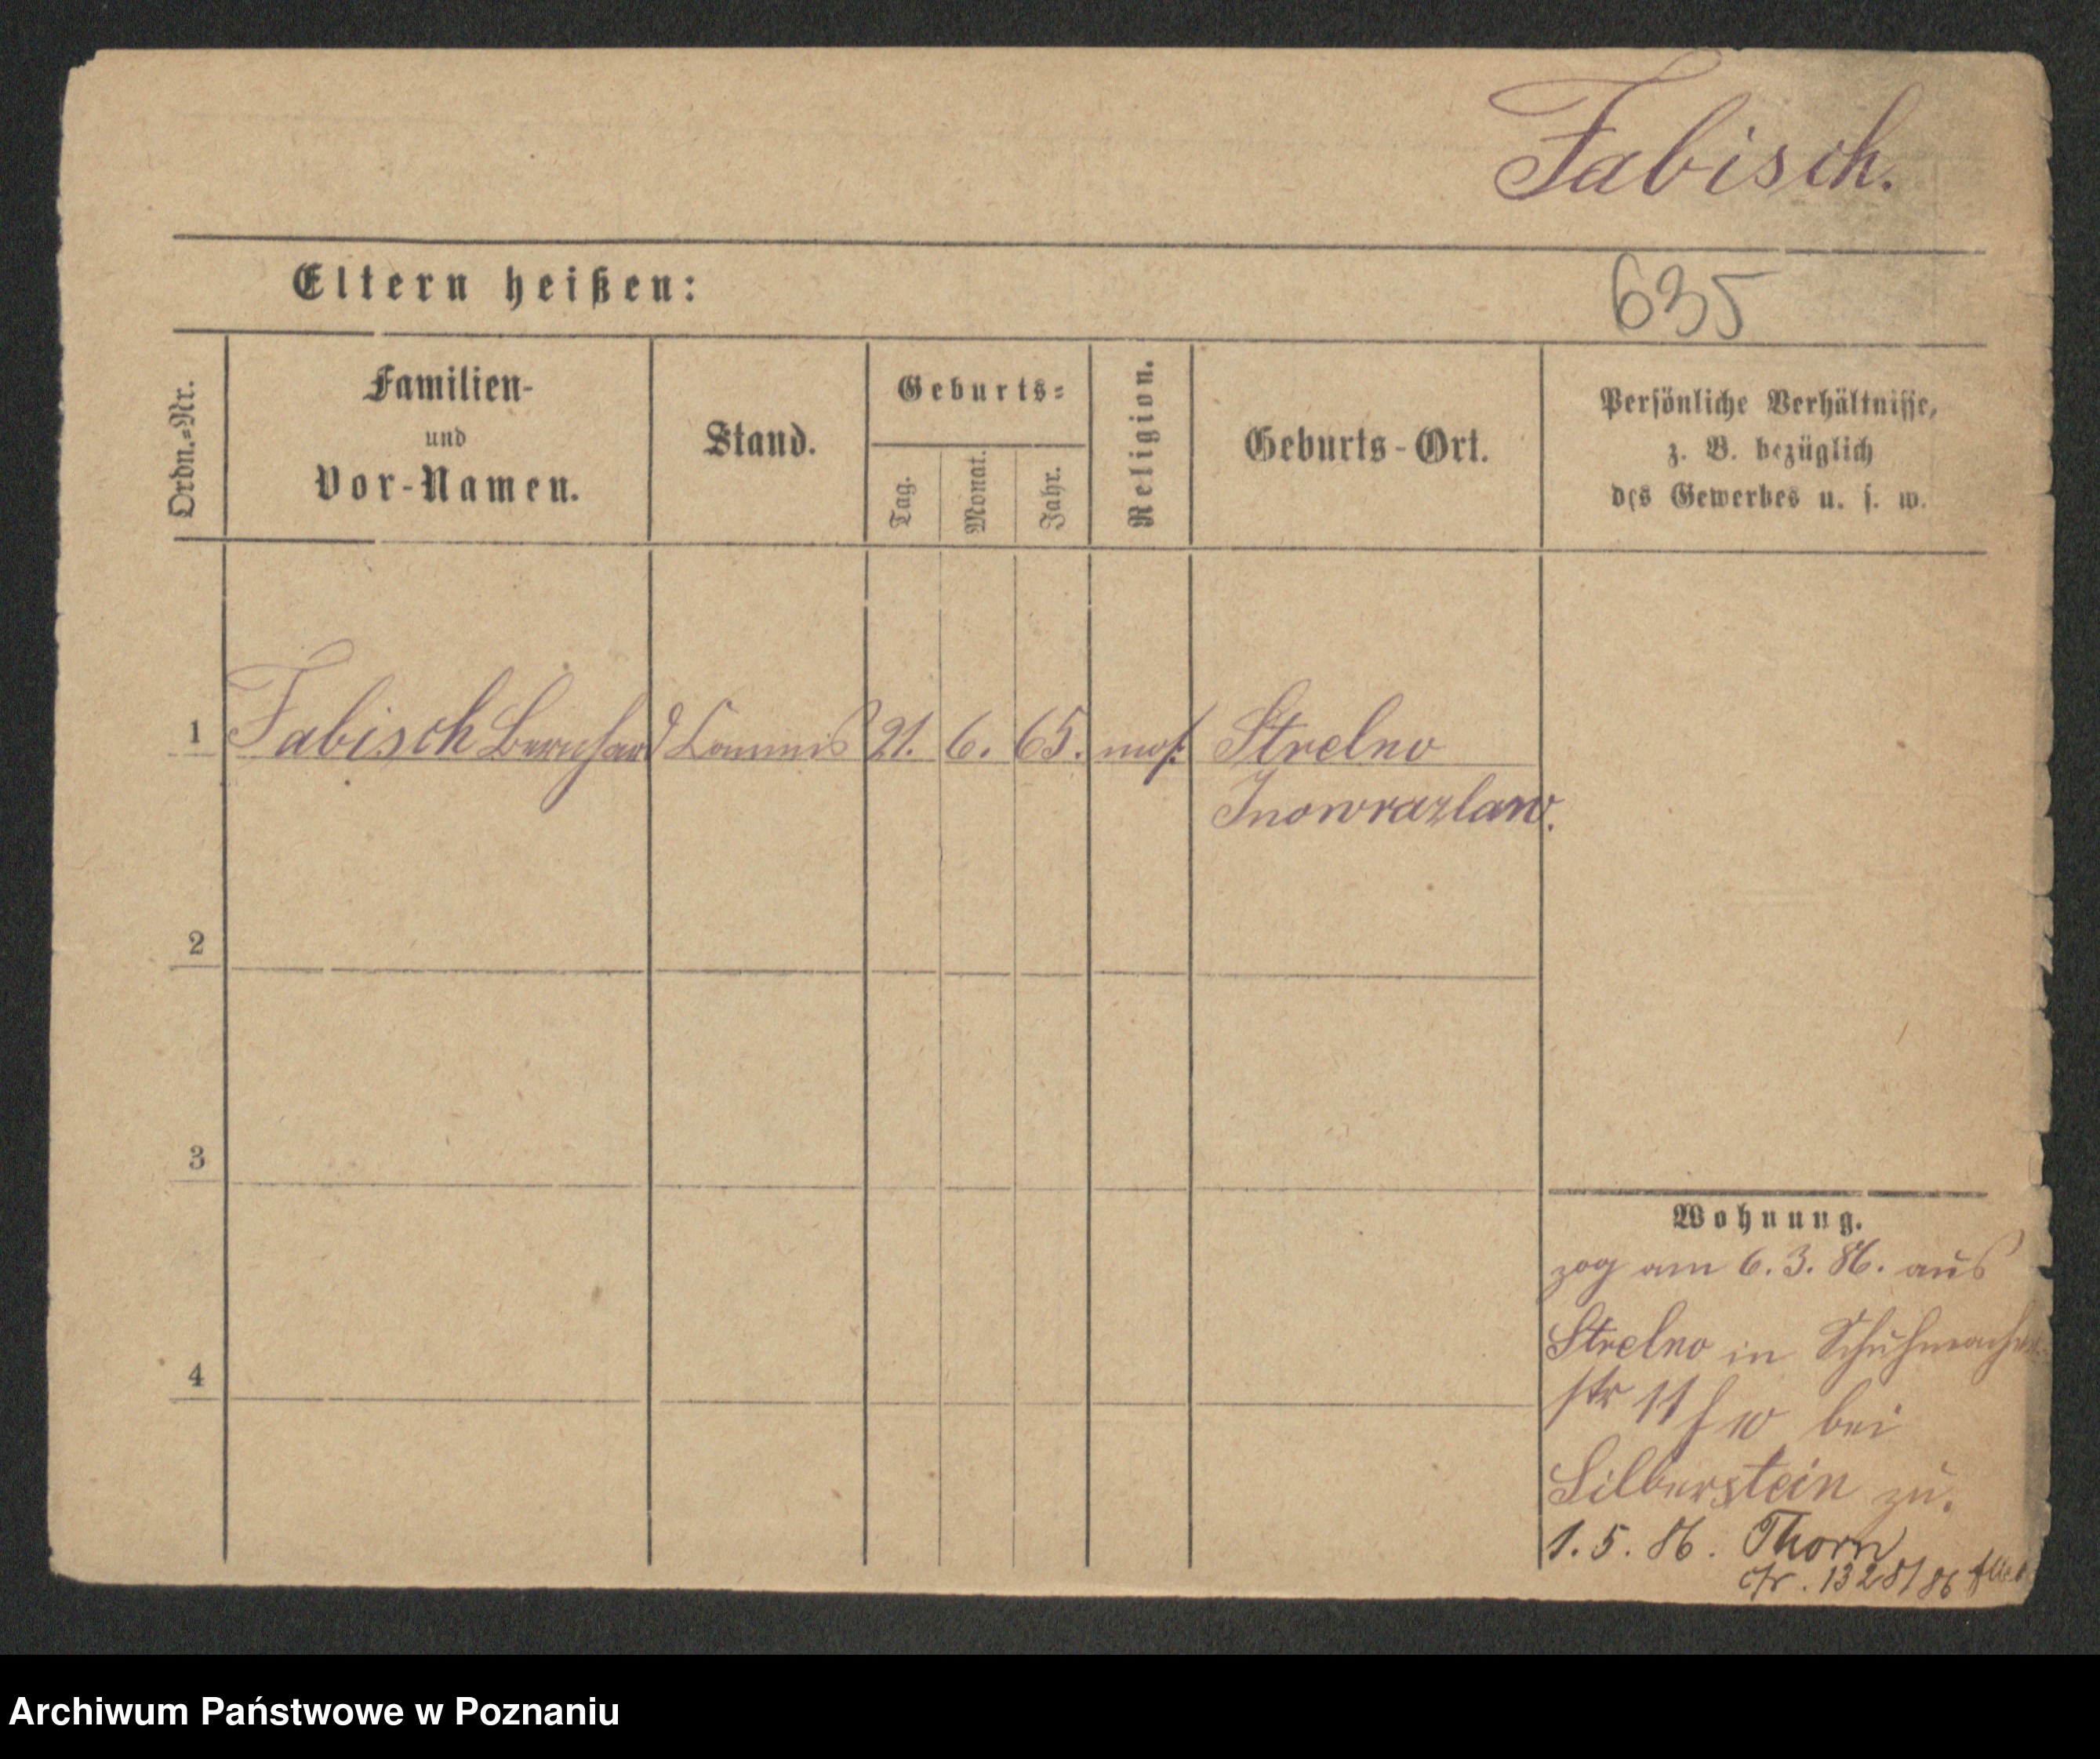 Fabisch.
Eltern heißen:
635
Ordn.-Nr.
Familien-
und
Vor-Namen.
Stand.
Geburts-
Tag.
Monat.
Jahr.
Religion.
Geburts-Ort.
Persönliche Verhältnisse,
z. B. bezüglich
des Gewerbes u. s. w.
1 Fabisch Bernhard Commis 21. 6. 65. mos. Strelno
Inowrazlaw.
2
3
4
Wohnung.
zog am 6. 3. 86. aus
Strelno in Schuhmacher
str 11 bei
Silberstein zu.
1. 5. 86. Thorn
Nr. 1328/86
Archiwum Państwowe w Poznaniu